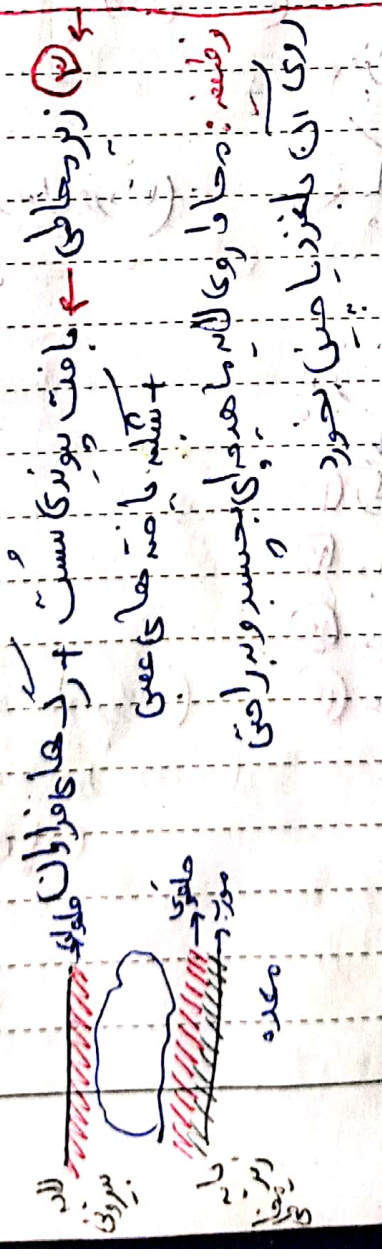 ③ زیرمخاطی ← بافت پیوندی سست + رگ‌های فراوان
+ شبکه یاخته‌های عصبی
وظیفه: مخاط روی لایه ماهیچه‌ای بچسبد و به راحتی
روی آن بلغزد یا چین بخورد
لایه بیرونی
حلقوی
حلقوی
مورب
معده